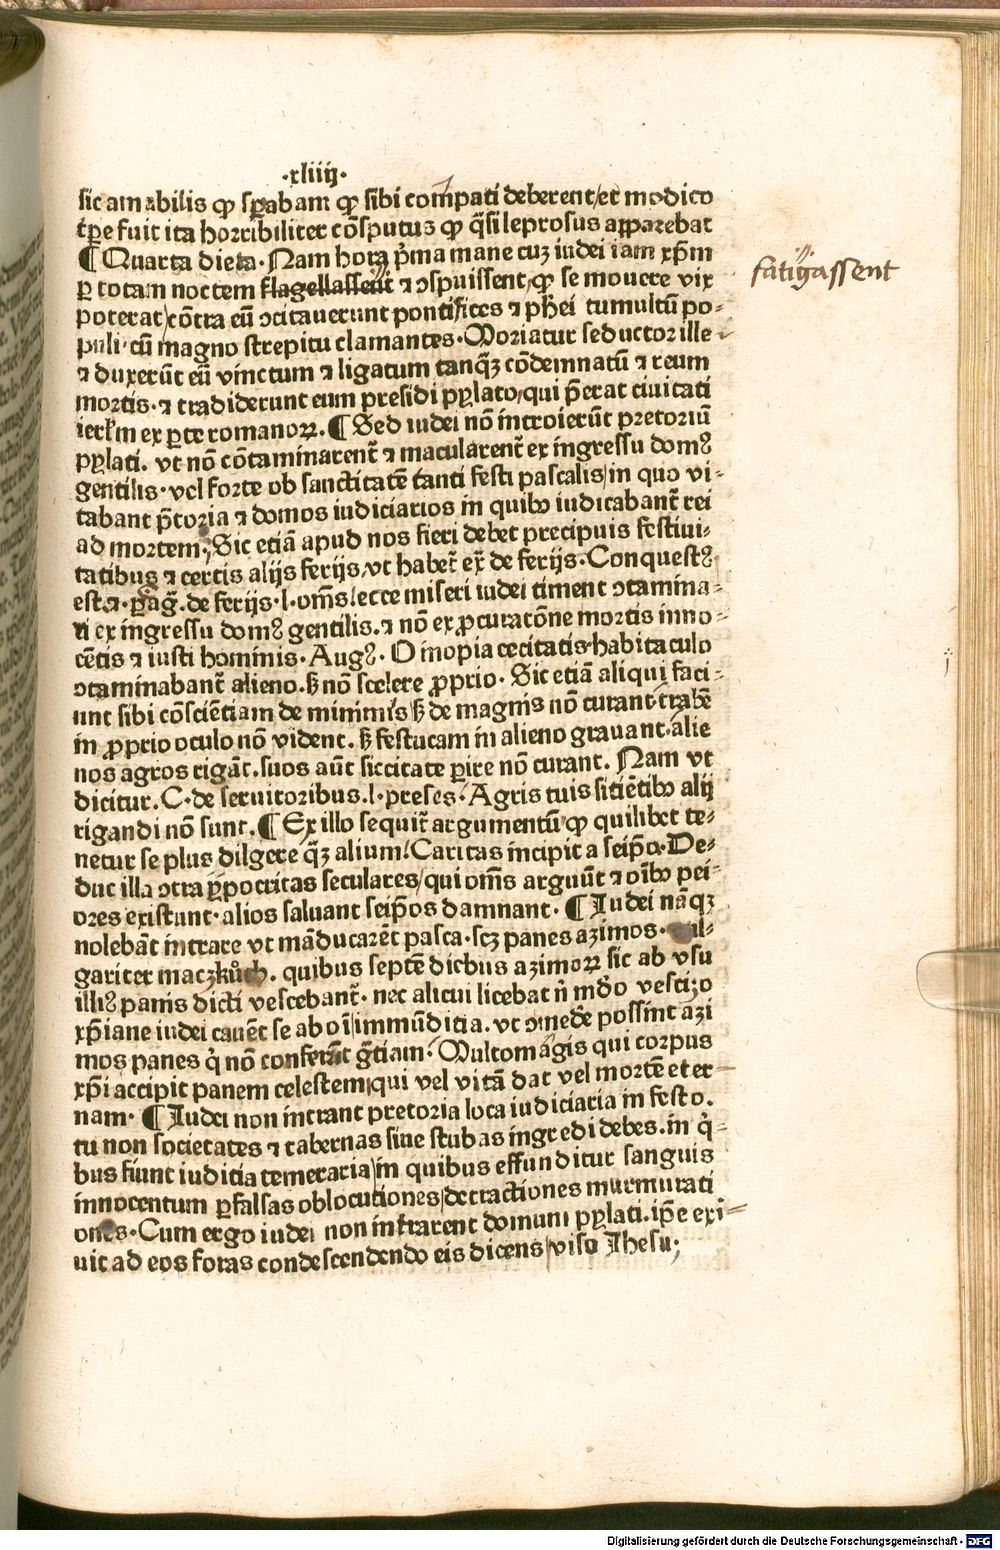 ·xliiij·
sic amabilis ꝙ sꝑabam ꝙ sibi compati deberent/et modico
tꝑe fuit ita horribiliter cōsputus ꝙ q̄si leprosus apparebat
¶ Quarta dieta· Nam hora p̄ma mane cuȝ iudei iam xp̄m
ꝑ totam noctem flagellassent ⁊ ɔspuissent/ꝙ se mouere vix
fatigassent
poterat/cōtra eū ɔcitauerunt pontifices ⁊ ph̄ei tumultū po⸗
puli· cū magno strepitu clamantes· Moriatur seductor ille
⁊ duxerūt eū vinctum ⁊ ligatum tanq̄ȝ cōdemnatū ⁊ reum
mortis· ⁊ tradiderunt eum presidi pylato/qui p̄erat ciuitati
ierl̄m ex ꝑte romanoꝝ. ¶ Sed iudei nō introierūt pretoriū
pylati. vt nō cōtaminarent᷑ ⁊ macularent᷑ ex ingressu domꝰ
gentilis· vel forte ob sanctitatē tanti festi pascalis/in quo vi⸗
tabant p̄toria ⁊ domos iudiciarios in quibꝰ iudicabant᷑ rei
ad mortem/ Sic etiā apud nos fieri debet precipuis festiui⸗
tatibus ⁊ certis alijs ferijs/vt habet᷑ ex̄ de ferijs· Conquestꝰ
est· ⁊· ꝑag̃. de ferijs· l· om̄s/ecce miseri iudei timent ɔtamina⸗
ri ex ingressu domꝰ gentilis. ⁊ nō ex ꝓcuratōne mortis inno⸗
cētis ⁊ iusti hominis· Augꝰ. O inopia cecitatis habitaculo
ɔtaminabant᷑ alieno. ſꝫ nō scelere ꝓprio· Sic etiā aliqui faci⸗
unt sibi cōsciētiam de minimis ſꝫ de magnis nō curant· trabē
in ꝓprio oculo nō vident. ſꝫ festucam in alieno grauant. alie
nos agros rigāt. suos aūt siccitate ꝑire nō curant. Nam vt
dicitur. C· de seruitoribus. l· preses· Agris tuis sitiētibꝰ alij
rigandi nō sunt. ¶ Ex illo sequit᷑ argumentū ꝙ quilibet te⸗
netur se plus dilgere q̄ȝ alium/ Caritas incipit a seip̄o. De⸗
duc illa ɔtra ypocritas seculares/qui om̄s arguūt ⁊ oībꝰ pei⸗
ores existunt· alios saluant seip̄os damnant· ¶ Iudei nāqȝ
nolebāt intrare vt māducarēt pasca· scȝ panes azimos·
gariter quibus septē diebus azimoꝝ sic ab vsu
illiꝰ panis dicti vescebant᷑· nec alicui licebat n̄ mō vesci/o
xp̄iane iudei cauēt se ab oī immūdicia. vt ɔmedē possint azi
mos panes q̇ nō conferūt gr̄tiam· Multomagis qui corpus
xp̄i accipit panem celestem/qui vel vitā dat vel mortē eter⸗
nam· ¶ Iudei non intrant pretoria loca iudiciaria in festo.
tu non societates ⁊ tabernas siue stubas ingredi debes. in q̇⸗
bus fiunt iudicia temeraria/in quibus effunditur sanguis
innocentum ꝑ falsas oblocutiones/detractiones murmurati
ones· Cum ergo iudei non intrarent domum pylati. ip̄e exi⸗
uit ad eos foras condescendendo eis dicens/viso Ihesu;
Digitalisierung gefördert durch die Deutsche Forschungsgemeinschaft - DFG